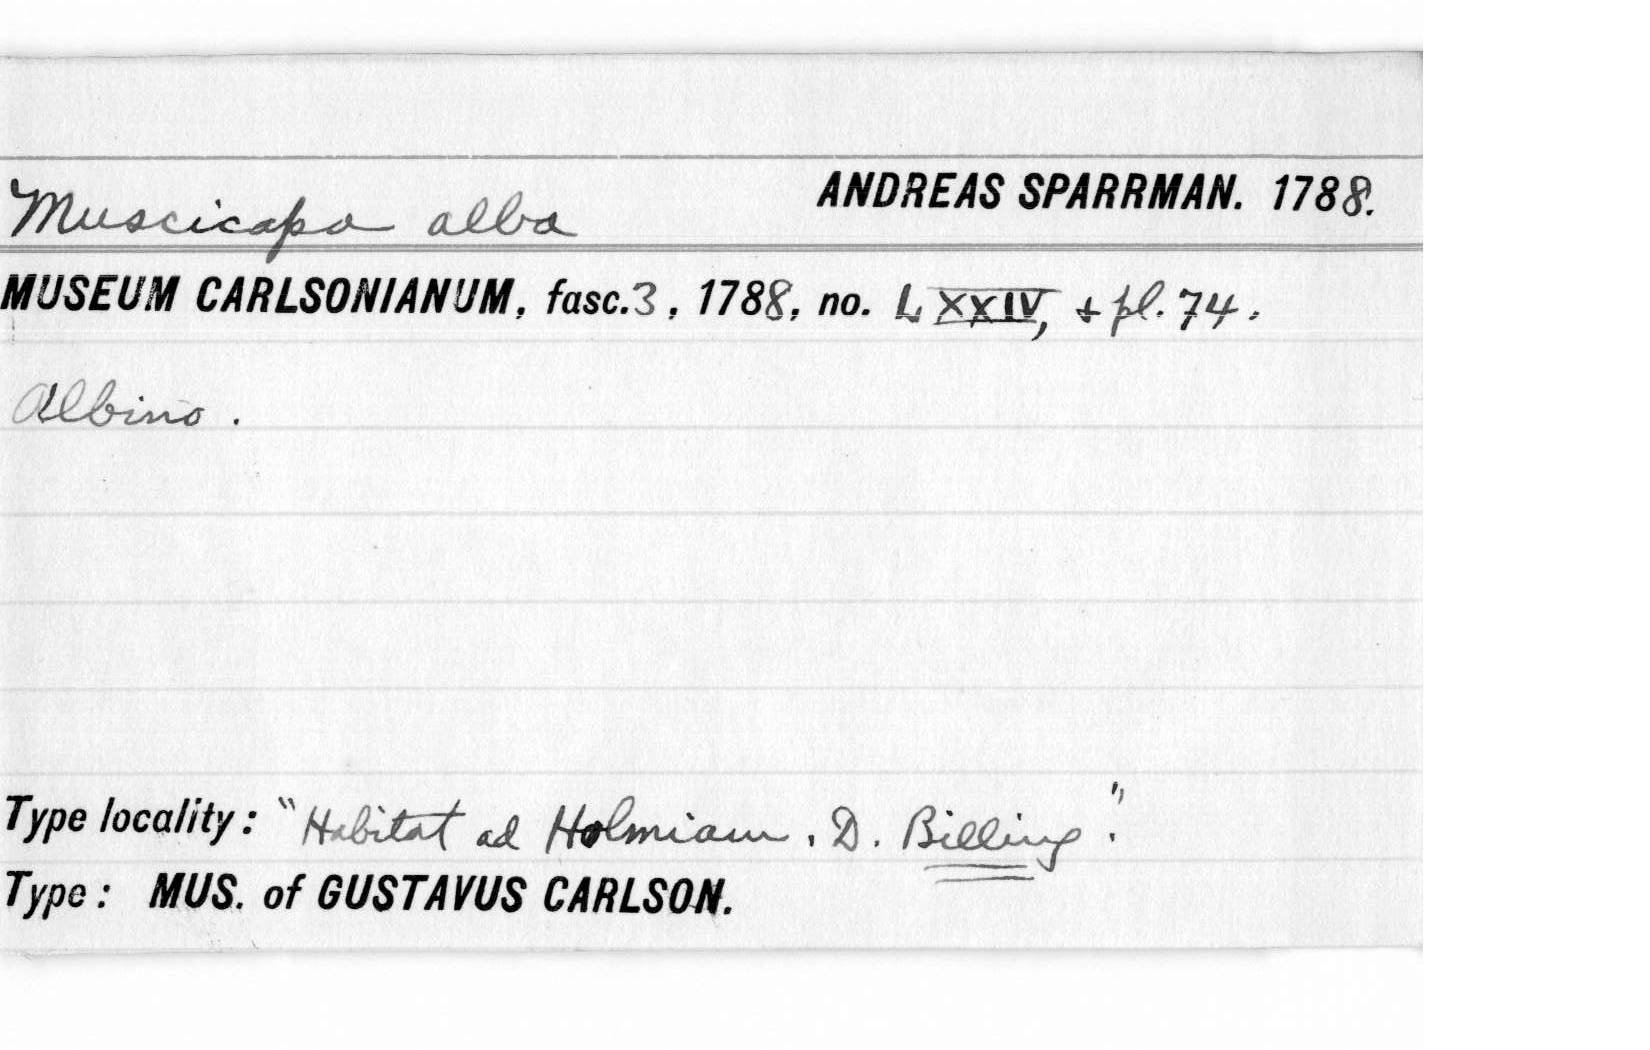 Muscicapa alba ANDREAS SPARRMAN. 1788.
MUSEUM CARLSONIANUM, fasc.3, 1788, no. LXXIV, + pl. 74.
Albino.
Type locality: "Habitat ad Holmiam. D. Billing."
Type: MUS. of GUSTAVUS CARLSON.